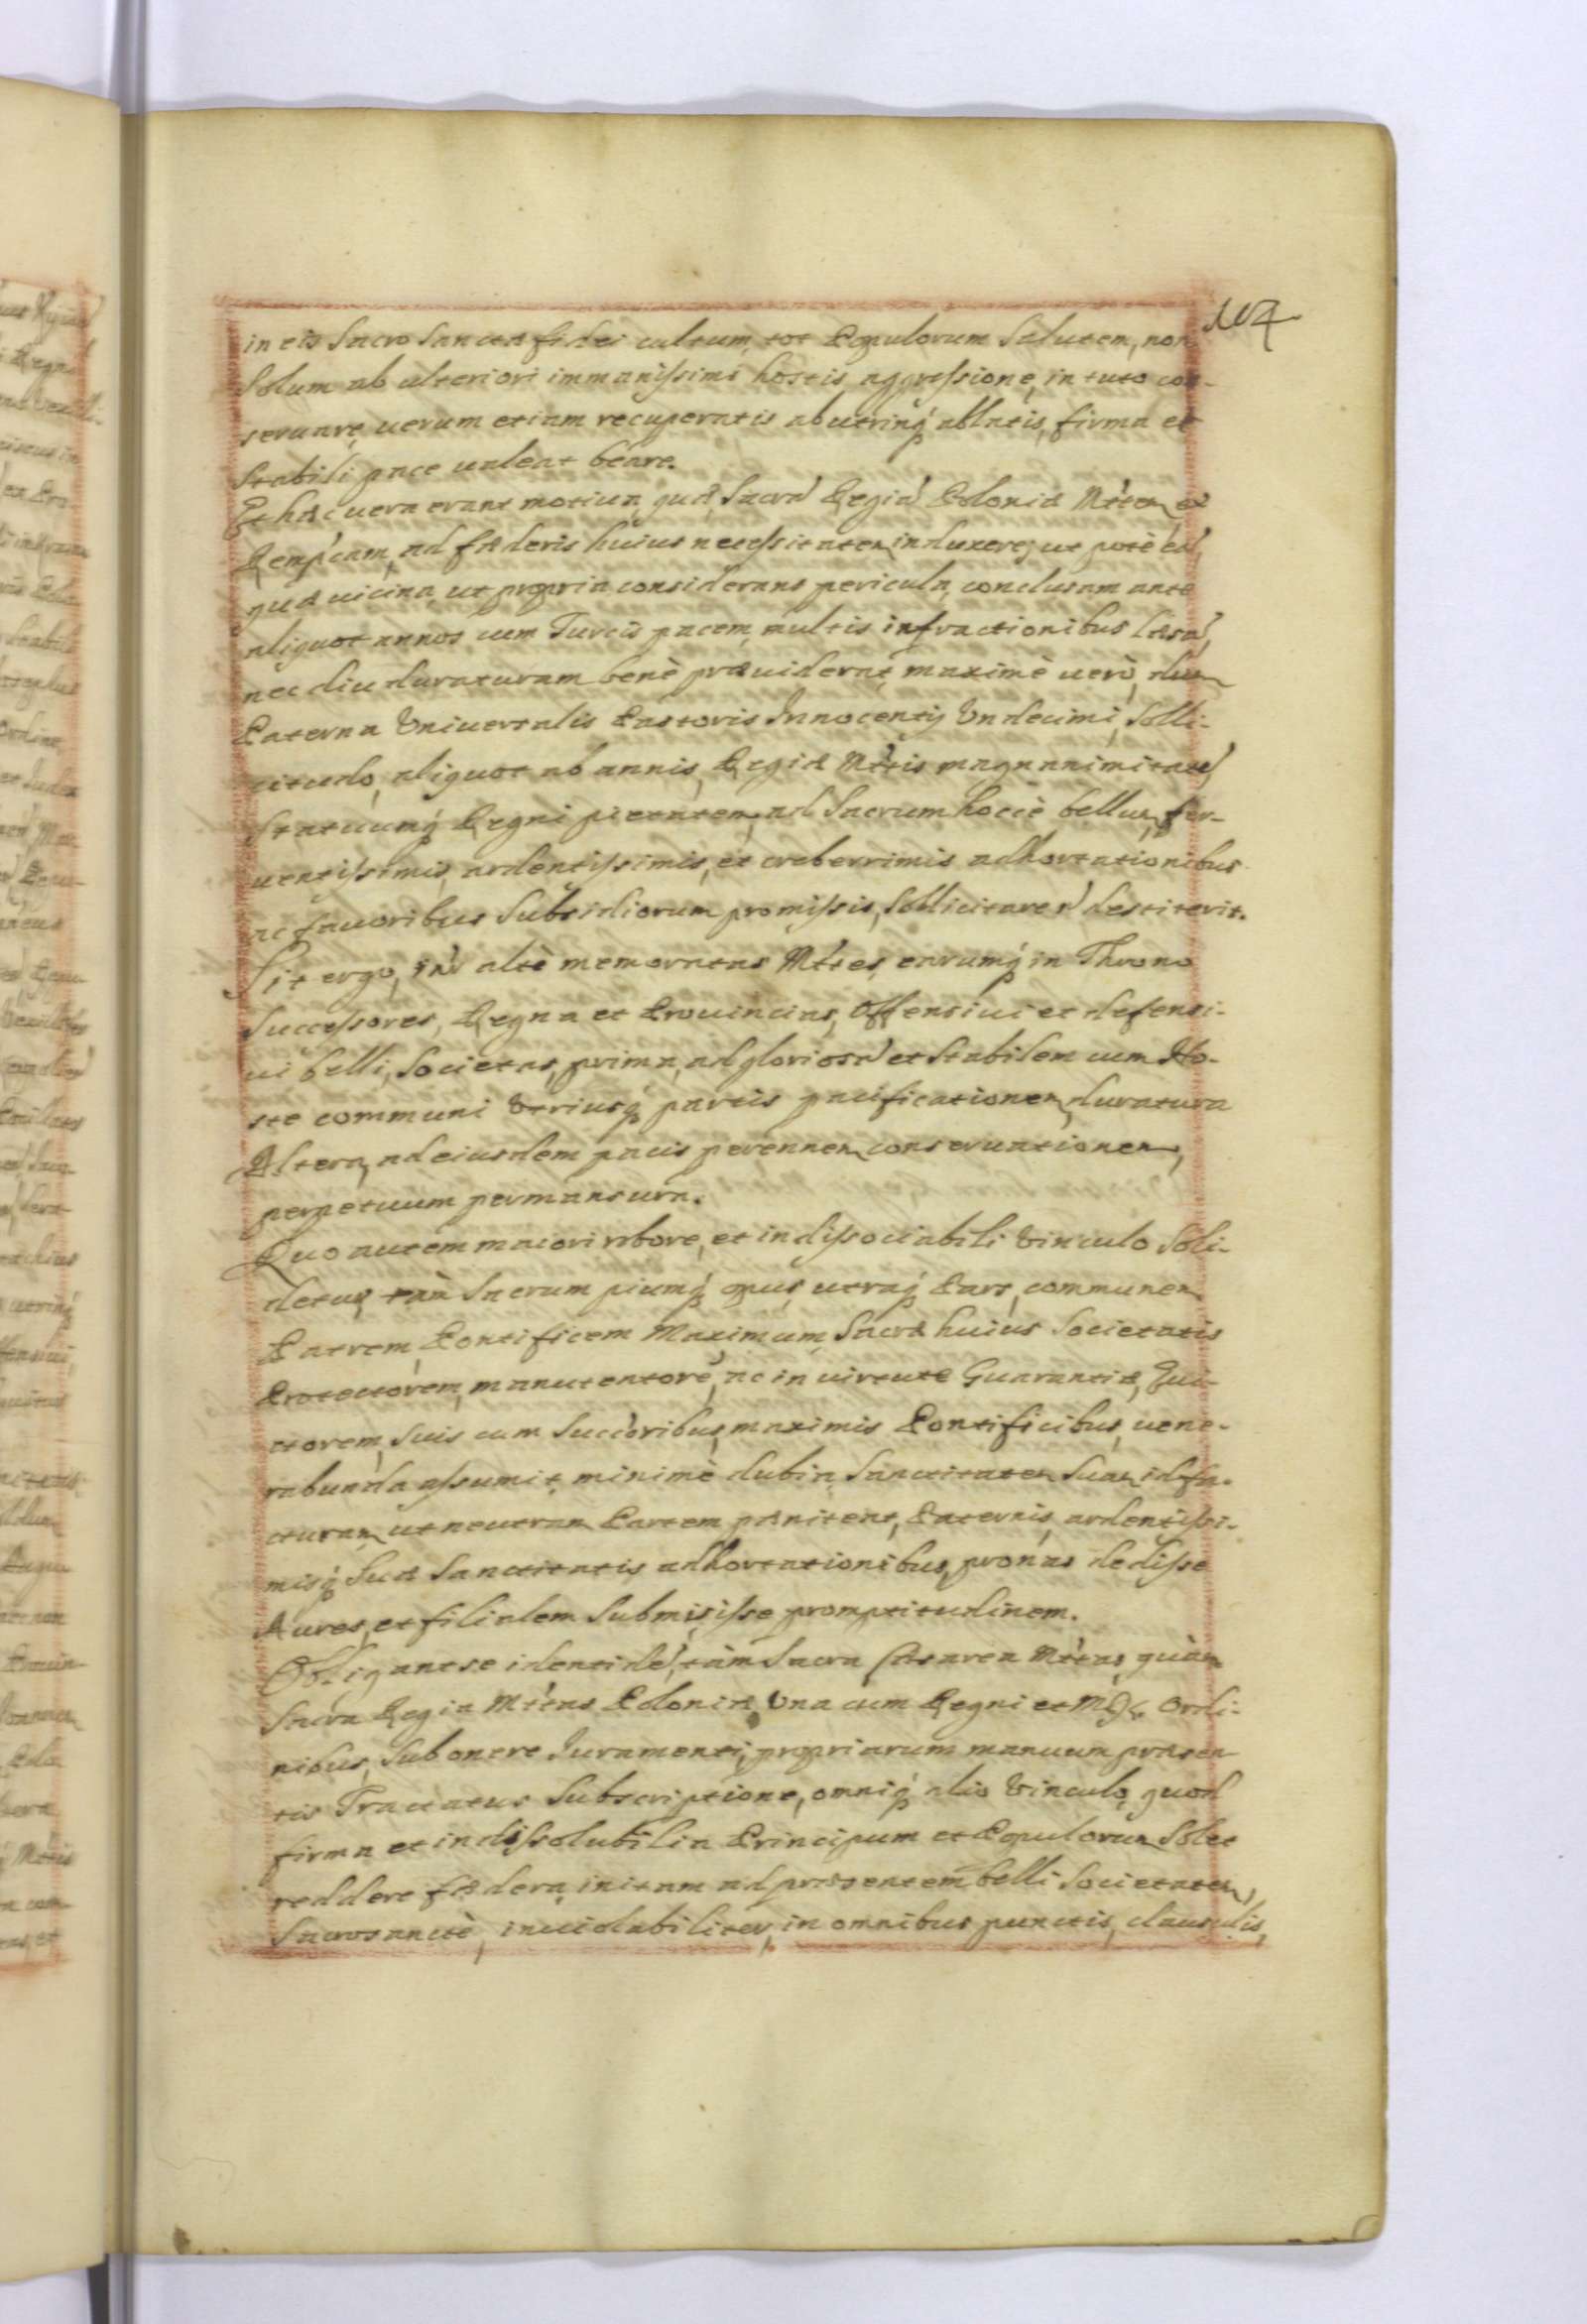 104
in eis Sacro Sanctæ fidei cultum, tot Populorum Salutem, non
Solum ab ulteriori immanissimi hostis aggressione, in tuto con-
seruare, uerum etiam recuperatis ab utrinq́ ablatis, firma et
Stabili pace ualeat beare.
Et hæc uera erant motiua, quæ Sacrā Regiā Poloniæ Mt́tem et
Rempćam, ad fæderis huius necessitatem induxere, ut potè eā,
quæ uicina, ut propria considerans pericula, conclusam ante
aliquot annos cum Turcis pacem, multis infractionibus læsā,
nec diu duraturam benè præuiderat, maximè uerò, dum
Paterna Vniuersalis Pastoris Innocentij Vndecimi, Solli-
citudo, aliquot ab annis, Regiæ Mt́tis magnanimitatē
Statuumq́ Regni pietatem, ad Sacrum hoccè bellum, fer-
uentissimis, ardentissimis, et creberrimis adhortationibus
ac fauoribus Subsidiorum promissis, Sollicitare ñ destiterit.
Sit ergo, intr̃ altè memoratas Mt́tes, earumq́ in Throno
Successores, Regna et Prouincias, Offensiui et defensi-
ui belli, Societas, prima, ad gloriosā et Stabilem cum Ho-
ste communi Vtriusq́ partis pacificationem, duratura
Altera, ad eiusdem pacis perennem conseruationem,
perpetuum permansura.
Quo autem maiori robore, et indissociabili Vinculo Soli-
detur, tàm Sacrum piumq́ opus, utraq́ Pars, communem
Patrem, Pontificem Maximum, Sacræ huius Societatis
Protectorem, manutentorē, ac in uirtute Guarantiæ, Eui-
ctorem, Suis cum Succ̃oribus, maximis Pontificibus, uene-
rabunda assumit, minimè dubia, Sanctitatem Suam id fa-
cturam, ut neutram Partem pæniteat, Paternis, ardentissi-
misq́ Suæ Sanctitatis adhortationibus, pronas dedisse
Aures, et filialem Submisisse promptitudinem.
Obligant se identidē, tàm Sacra Cæsarea Mt́tas, quàm
Sacra Regia Mt́tas Poloniæ, Vna cum Regni et M. D. L. Ordi-
nibus, Sub onere Iuramenti, propriarum manuum præsen-
tis Tractatus Subscriptione, omniq́ alio Vinculo, quod
firma et indissolubilia Principum et Populorum Solet
reddere fædera, initam ad præsentem belli Societatem,
Sacrosanctè, inuiolabiliter, in omnibus punctis, clausulis,